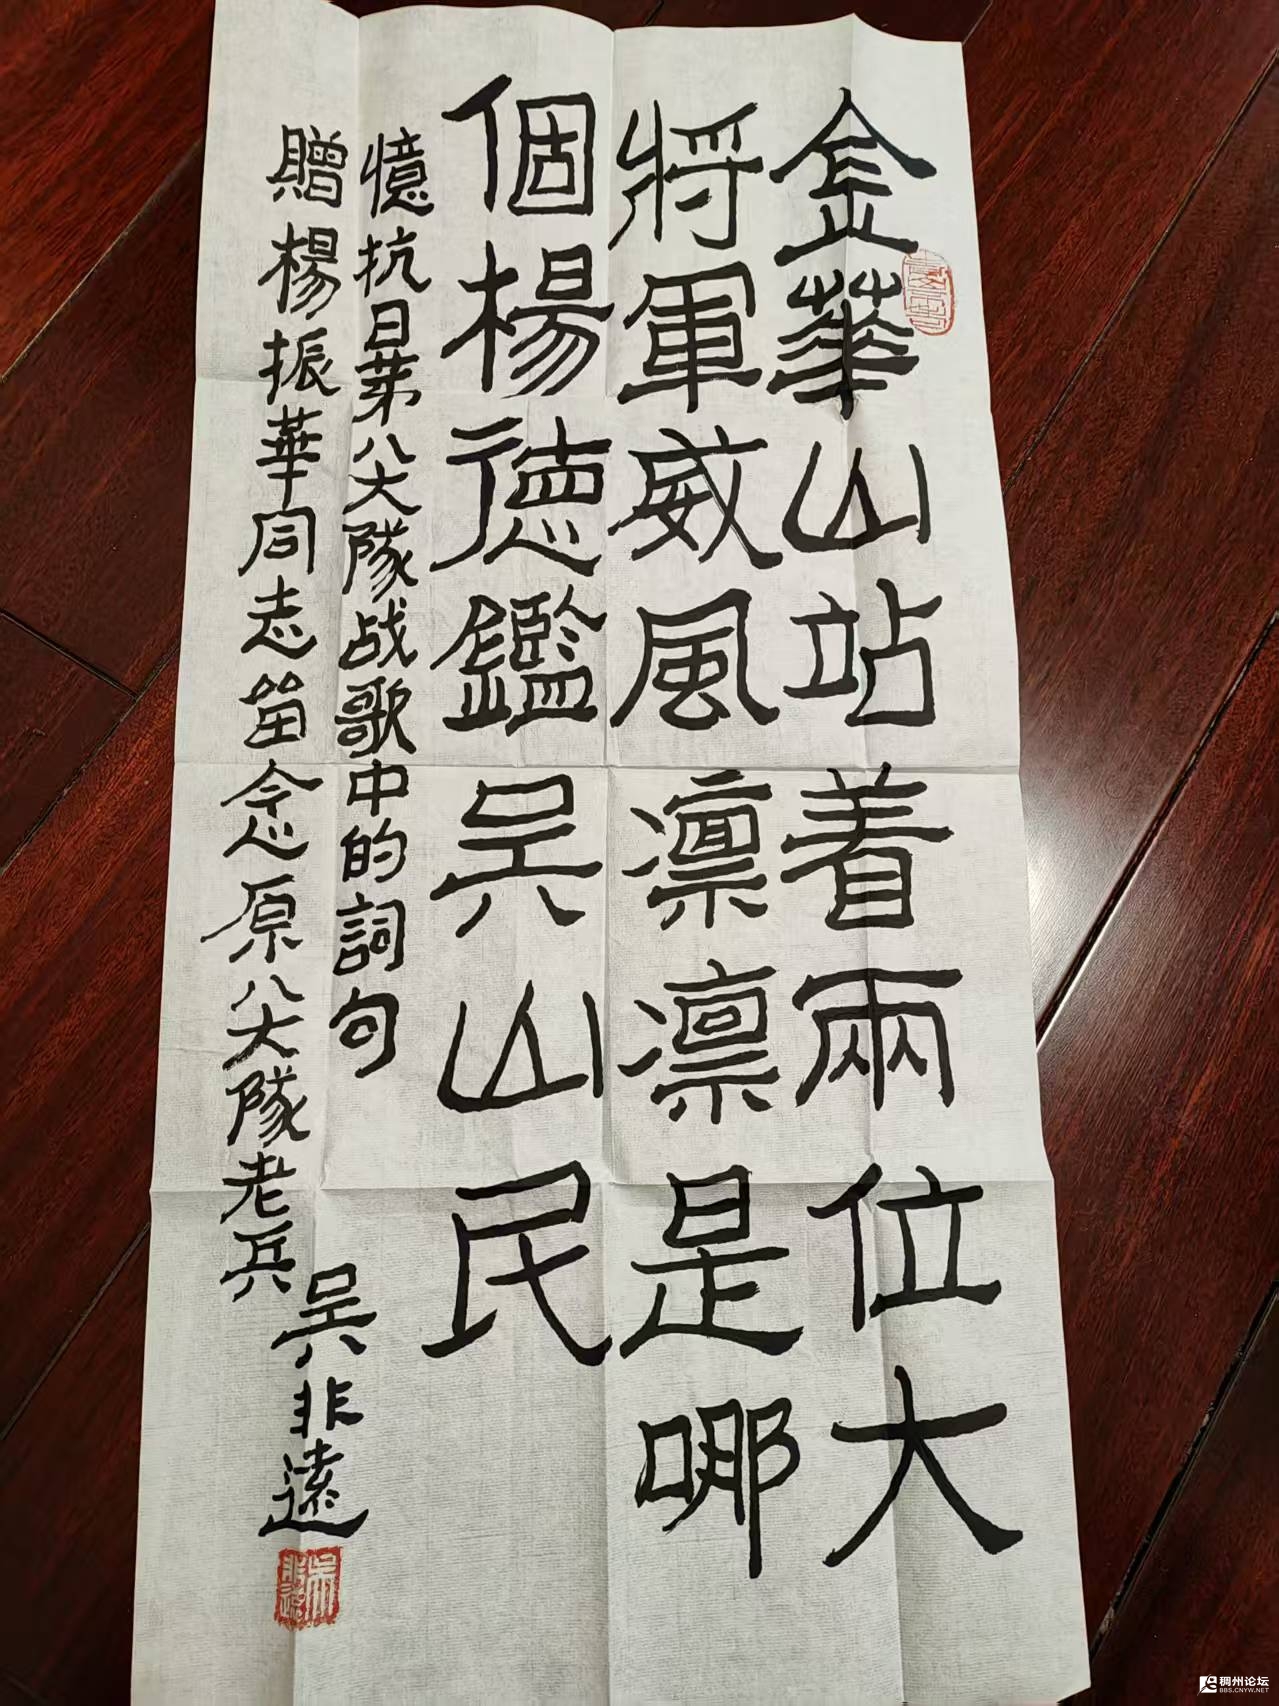 金華山站着兩位大
將軍威風凛凛是哪
個楊德鑑吴山民
憶抗日第八大隊战歌中的詞句
贈楊振華同志留念原八大隊老兵
吴非遠
稠州论坛
BBS.CNYW.NET